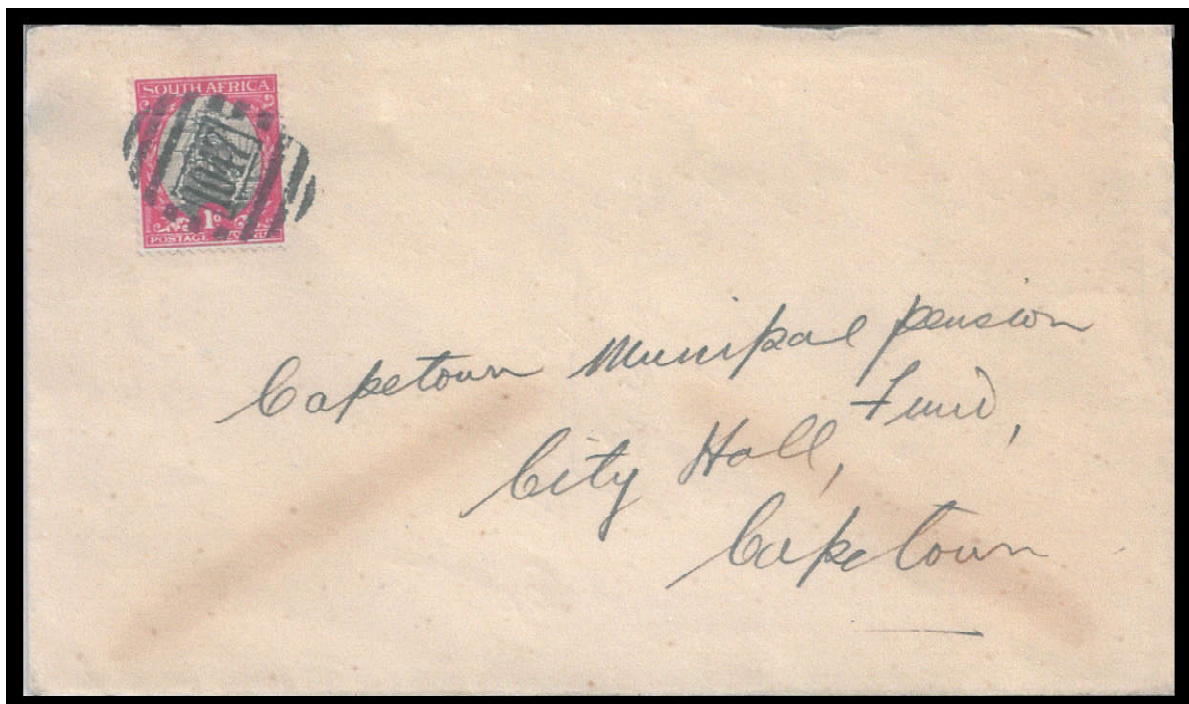 SOUTH AFRICA
1D
POSTAGE
Capetown Municpal pension
Fund,
City Hall,
Capetown